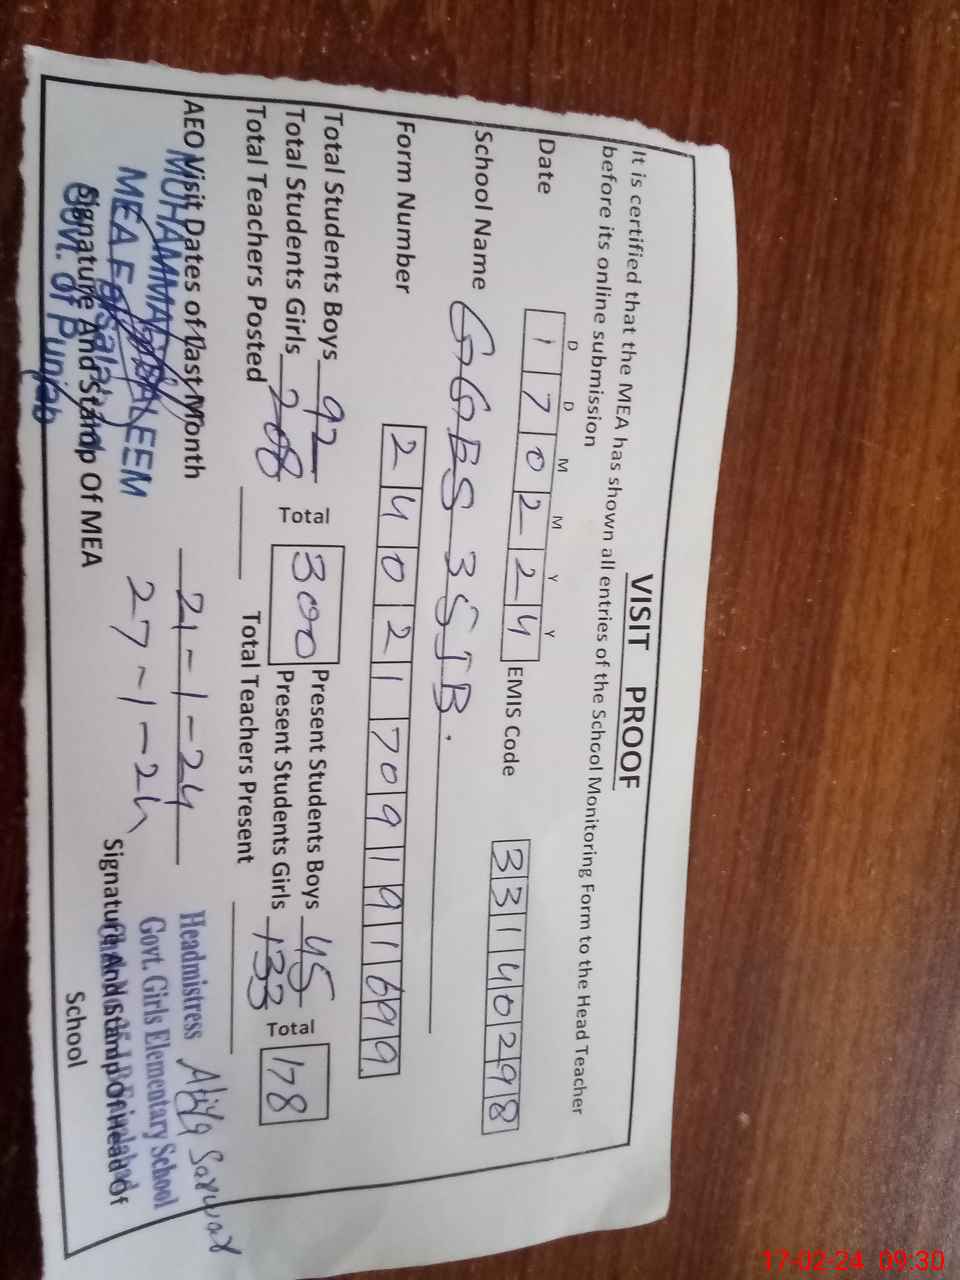 VISIT PROOF
It is certified that the MEA has shown all entries of the School Monitoring Form to the Head Teacher
before its online submission
D D M M Y Y
Date 1 7 0 2 2 4 EMIS Code 3 3 1 4 0 2 9 8
School Name GGES 3SJB.
Form Number 2 4 0 2 1 7 0 9 1 9 1 6 9 9
Total Students Boys 92 Total 300 Present Students Boys 45 Total 178
Total Students Girls 208 Present Students Girls 133
Total Teachers Posted Total Teachers Present
AEO Visit Dates of last Month 21-1-24
27-1-24
MUHAMMAD SALEEM
MEA Faisalabad
Govt. of Punjab
Signature And Stamp Of MEA
Headmistress
Govt. Girls Elementary School
Signature And Stamp Of Head Of
School
Sarwar
17-02-24 09:30